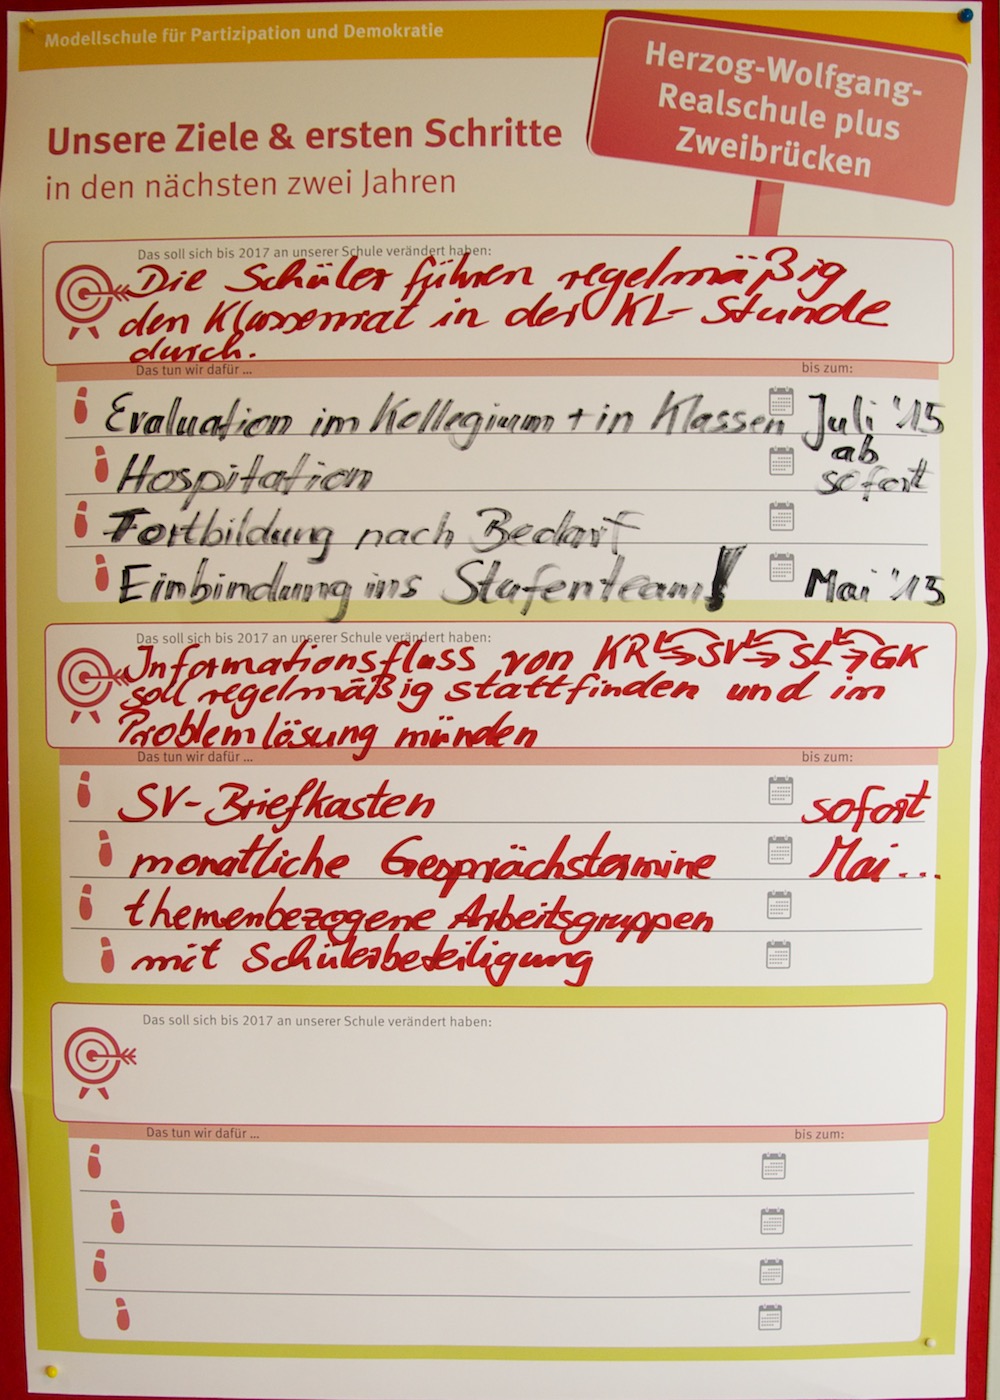 Modellschule für Partizipation und Demokratie
Herzog-Wolfgang-
Realschule plus
Zweibrücken
Unsere Ziele & ersten Schritte
in den nächsten zwei Jahren
Das soll sich bis 2017 an unserer Schule verändert haben:
Die Schüler führen regelmäßig
den Klassenrat in der KL- Stunde
durch.
Das tun wir dafür ... bis zum:
Evaluation im Kollegium + in Klassen Juli '15
Hospitation ab sofort
Fortbildung nach Bedarf
Einbindung ins Stufenteam! Mai '15
Das soll sich bis 2017 an unserer Schule verändert haben:
Informationsfluss von KR ⇄ SV ⇄ SL ⇄ GK
soll regelmäßig stattfinden und im
Problemlösung münden
Das tun wir dafür ... bis zum:
SV-Briefkasten sofort
monatliche Gesprächstermine Mai...
themenbezogene Arbeitsgruppen
mit Schülerbeteiligung
Das soll sich bis 2017 an unserer Schule verändert haben:
Das tun wir dafür ... bis zum: